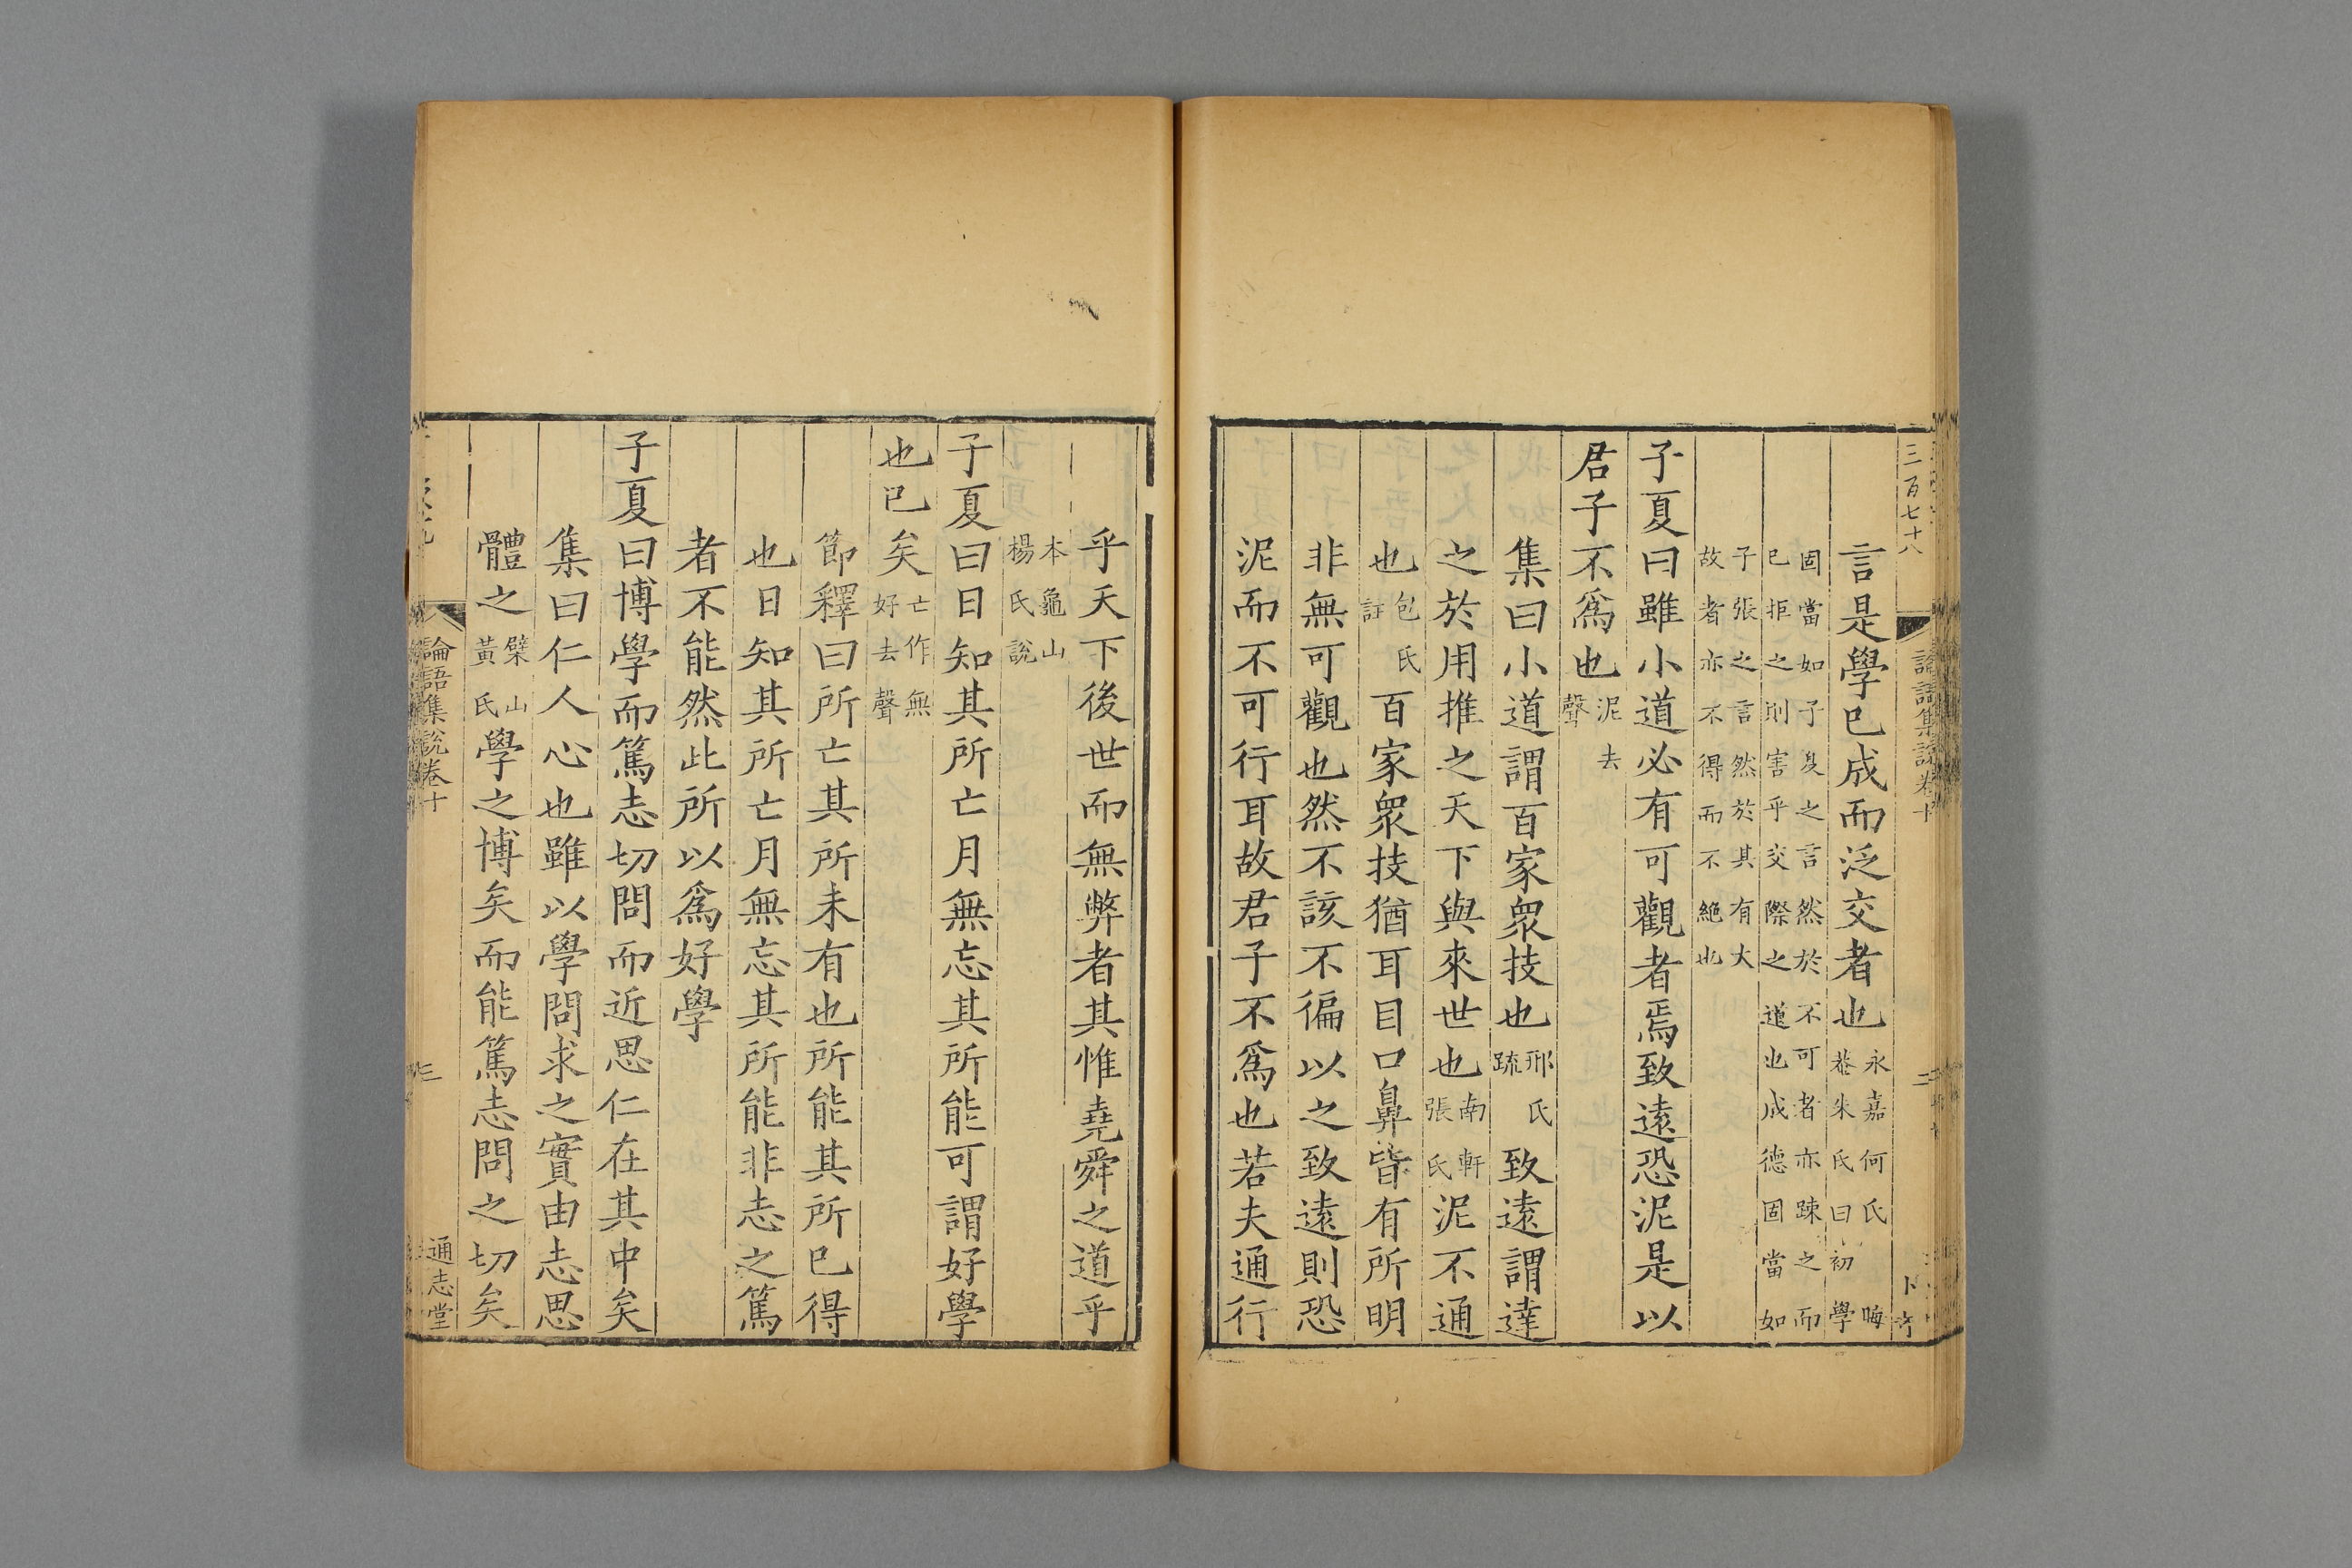 三百七十八
論語集說卷十
二
言是學已成而泛交者也永嘉何氏 晦菴朱氏曰初學
固當如子夏之言然於不可者亦踈之而已拒之則害乎交際之道也成德固當如
子張之言然於其有大故者亦不得而不絶也
子夏曰雖小道必有可觀者焉致遠恐泥是以
君子不爲也泥去聲
集曰小道謂百家衆技也邢氏疏致遠謂達
之於用推之天下與來世也南軒張氏泥不通
也包氏註百家衆技猶耳目口鼻皆有所明
非無可觀也然不該不徧以之致遠則恐
泥而不可行耳故君子不爲也若夫通行
乎天下後世而無弊者其惟堯舜之道乎
本龜山楊氏說
子夏曰日知其所亡月無忘其所能可謂好學
也已矣亡作無好去聲
節釋曰所亡其所未有也所能其所已得
也日知其所亡月無忘其所能非志之篤
者不能然此所以爲好學
子夏曰博學而篤志切問而近思仁在其中矣
集曰仁人心也雖以學問求之實由志思
體之檗山黃氏學之博矣而能篤志問之切矣
論語集說卷十
三
通志堂